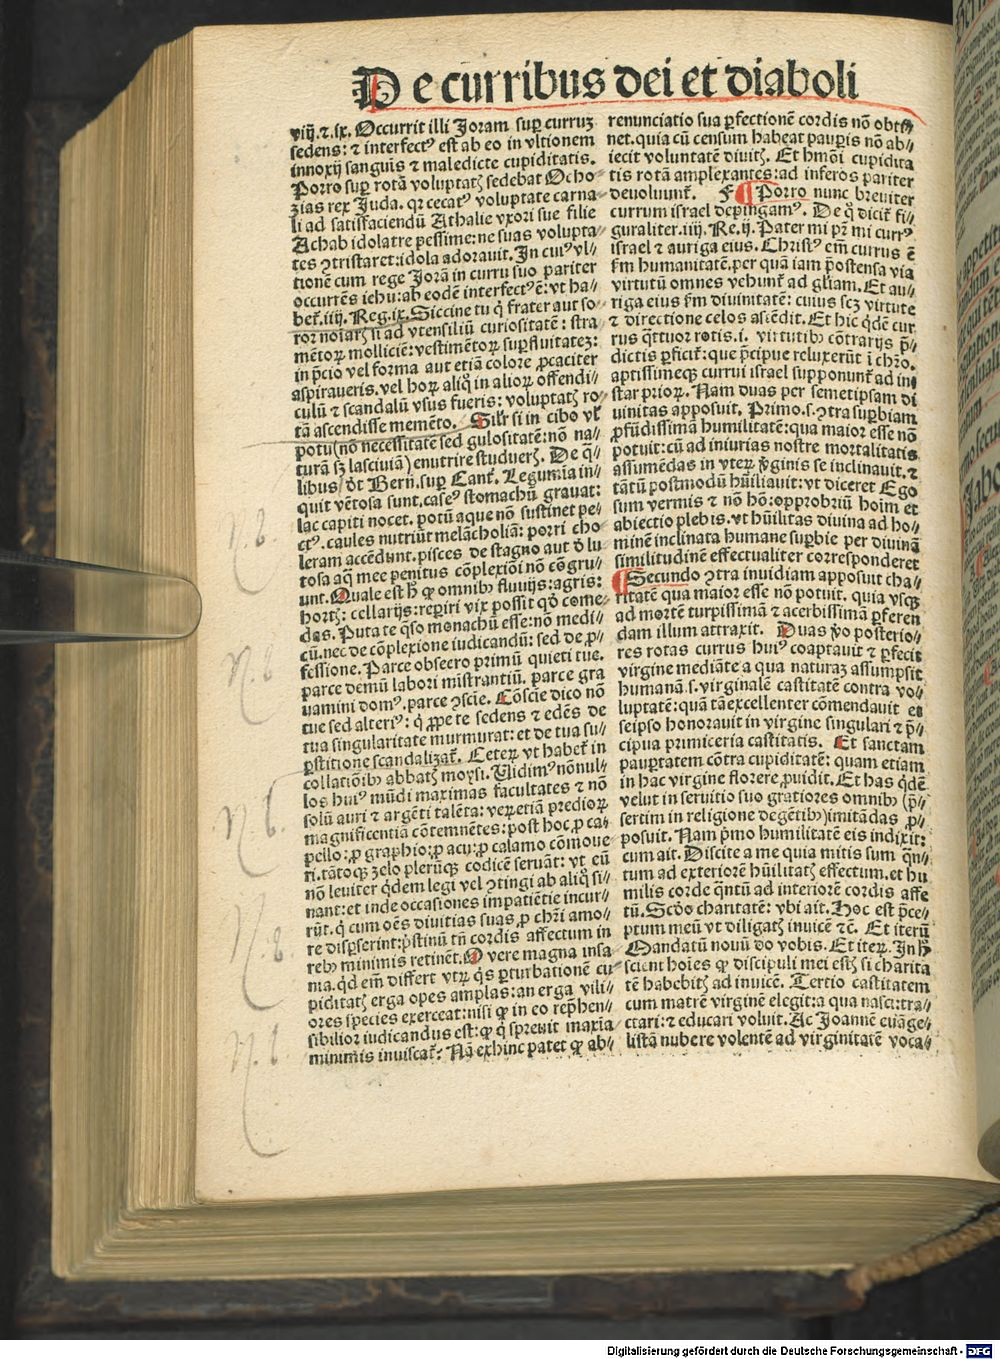 De curribus dei et diaboli
viij. ⁊ ix. Occurrit illi Joram sup̱ curruꝫ
sedens: ⁊ interfectꝰ est ab eo in vltionem
innoxij sanguis ⁊ maledicte cupiditatis.
Porro sup̱ rotā voluptatꝭ sedebat Ocho⸗
zias rex Juda. qr cecatꝰ voluptate carna
li ad satisfaciendū Athalie vxori sue filie
Achab idolatre pessime: ne suas volupta⸗
tes ꝯtristaret: idola adorauit. In cuiꝰ vl⸗
tionē cum rege Jorā in curru suo pariter
occurrēs iehu: ab eodē interfectꝰ ē: vt ha⸗
bet᷑. iiij. Reg. ix. Siccine tu q̇ frater aut so⸗
ror noīarꝭ si ad vtensiliū curiositatē: stra⸗
mētoꝝ molliciē: vestimētoꝝ sup̱fluitateꝫ:
in p̄cio vel forma aut etiā colore ꝓcaciter
aspiraueris. vel hoꝝ aliq̊ in alioꝝ offendi⸗
culū ⁊ scandalū vsus fueris: voluptatꝭ ro⸗
tā ascendisse memēto. Silr̄ si in cibo vl̓
potu (nō necessitatē sed gulositatē: nō na⸗
turā sꝫ lasciuiā) enutrire studuerꝭ. De q̇⸗
libus dt̓ Bern̄. sup̱ Cant̓. Legumīa in⸗
quit vētosa sunt. caseꝰ stomachū grauat:
lac capiti nocet. potū aque nō sustinet pe⸗
ctꝰ. caules nutriūt melācholiā: porri cho⸗
leram accēdunt. pisces de stagno aut d̓ lu⸗
tosa aq̄ mee penitus cōplexiōi nō cōgru⸗
unt. Quale est h̓ ꝙ omnibꝰ fluuijs: agris:
hortꝭ: cellarijs: rep̱iri vix possit qd̓ come⸗
das. Puta te q̄so monachū esse: nō medi⸗
cū. nec de cōplexione iudicandū: sed de ꝓ⸗
fessione. Parce obsecro primū quieti tue.
parce demū labori mīstrantiū. parce gra
uamini domꝰ. parce ꝯscie. Cōscie dico nō
tue sed alteriꝰ: q̇ ꝓpe te sedens ⁊ edēs de
tua singularitate murmurat: et de tua su⸗
p̱stitione scandalizat᷑. Ceteꝝ vt habet᷑ in
collatiōibꝰ abbatꝭ moysi. Uidimꝰ nōnul⸗
los huiꝰ mūdi maximas facultates ⁊ nō
solū auri ⁊ argēti talēta: veꝝ etiā predioꝝ
magnificentiā cōtemnētes: post hoc ꝓ ca⸗
pello: ꝓ graphio: ꝓ acu: ꝓ calamo cōmoue
ri. tātoqꝫ zelo pleriqꝫ codicē seruāt: vt eū
nō leuiter q̇dem legi vel ꝯtingi ab aliq̊ si⸗
nant: et inde occasiones impatiētie incur⸗
rūt. q̇ cum oēs diuitias suas ꝓ chr̄i amo⸗
re disp̱serint: p̄stinū tn̄ cordis affectum in
rebꝰ minimis retinēt. O vere magna insa
nia. qd̓ em̄ differt vtꝝ q̇s p̱turbationē cu
piditatꝭ erga opes amplas: an erga vili⸗
ores species exerceat: nisi ꝙ in eo rep̄hen⸗
sibilior iudicandus est: ꝙ q̇ spreuit maxia
minimis inuiscat᷑? Nā ex hinc patet ꝙ ab⸗
renunciatio sua p̱fectionē cordis nō obti⸗
net. quia cū censum habeat paup̱is nō ab⸗
iecit voluntatē diuitꝭ. Et hmōi cupidita
tis rotā amplexantes: ad inferos pariter
deuoluunt᷑. F ¶ Porro nunc breuiter
currum israel depingamꝰ. De q̊ dicit᷑ fi⸗
guraliter. iiij. Re. ij. Pater mi pr̄ mi currꝰ
israel ⁊ auriga eius. Christꝰ em̄ currus ē
fm humanitatē. per quā iam p̄ostensa via
virtutū omnes vehunt᷑ ad gl̓iam. Et au⸗
riga eius fm diuinitatē: cuius scꝫ virtute
⁊ directione celos ascēdit. Et hic q̇dē cur
rus q̄ttuor rotis. i. virtutibꝰ cōtrarijs p̄⸗
dictis p̱ficit᷑: que p̄cipue reluxerūt ī chr̄o.
aptissimeqꝫ currui israel supponunt᷑ ad in⸗
star prioꝝ. Nam duas per semetipsam di
uinitas apposuit. Primo. s. ꝯtra sup̱biam
ꝓfūdissimā humilitatē: qua maior esse nō
potuit: cū ad iniurias nostre mortalitatis
assumēdas in vteꝝ v̓ginis se inclinauit. ⁊
tātū postmodū hūiliauit: vt diceret Ego
sum vermis ⁊ nō hō: opprobriū hoim et
abiectio plebis. vt hūilitas diuina ad ho⸗
minē inclinata humane sup̱bie per diuinā
similitudinē effectualiter corresponderet
¶ Secundo ꝯtra inuidiam apposuit cha⸗
ritatē qua maior esse nō potuit. quia vsqꝫ
ad mortē turpissimā ⁊ acerbissimā p̱feren
dam illum attraxit. Duas v̊o posterio⸗
res rotas currus huiꝰ coaptauit ⁊ p̱fecit
virgine mediāte a qua naturaꝫ assumpsit
humanā. s. virginalē castitatē contra vo⸗
luptatē: quā tā excellenter cōmendauit ei
seipso honorauit in virgine singulari ⁊ p̄⸗
cipua primiceria castitatis. Et sanctam
paup̱tatem cōtra cupiditatē: quam etiam
in hac virgine florere ꝓuidit. Et has q̇dē
velut in seruitio suo gratiores omnibꝰ (p̄⸗
sertim in religione degētibꝰ) imitādas ꝓ⸗
posuit. Nam p̄mo humilitatē eis indixit:
cum ait. Discite a me quia mitis sum q̄n⸗
tum ad exteriorē hūilitatꝭ effectum. et hu
milis corde q̄ntū ad interiorē cordis affe
tū. Scd̓o charitatē: vbi ait. Hoc est p̄ce⸗
ptum meū vt diligatꝭ inuicē ⁊c̄. Et iterū
Mandatū nouū do vobis. Et iteꝝ. In h̓
scient hoīes ꝙ discipuli mei estꝭ si charita
tē habebitꝭ ad inuicē. Tertio castitatem
cum matrē virginē elegit: a qua nasci: tra⸗
ctari: ⁊ educari voluit. Ac Joannē euāge⸗
listā nubere volentē ad virginitatē voca⸗
N. b.
N. b
N. b.
N. b.
N. b.
Digitalisierung gefördert durch die Deutsche Forschungsgemeinschaft - DFG